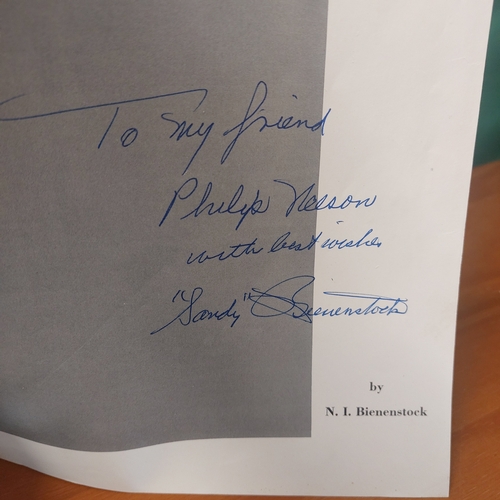 To my friend
Philip Nelson
with best wishes
"Sandy" Bienenstock
by
N. I. Bienenstock